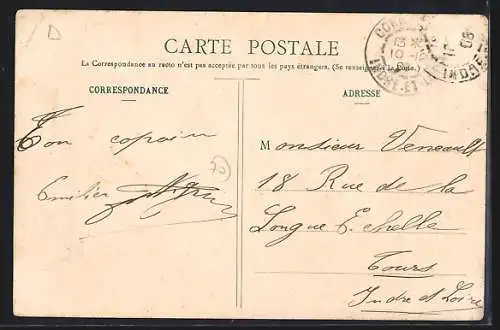 D
CARTE POSTALE
La Correspondance au recto n'est pas acceptée par tous les pays étrangers. (Se renseigner à la Poste.)
CORRESPONDANCE
ADRESSE
Ton copain
Emilien
70
Monsieur Veneault
18 Rue de la
Longue Echelle
Tours
Indre et Loire
13 *
10 - 12